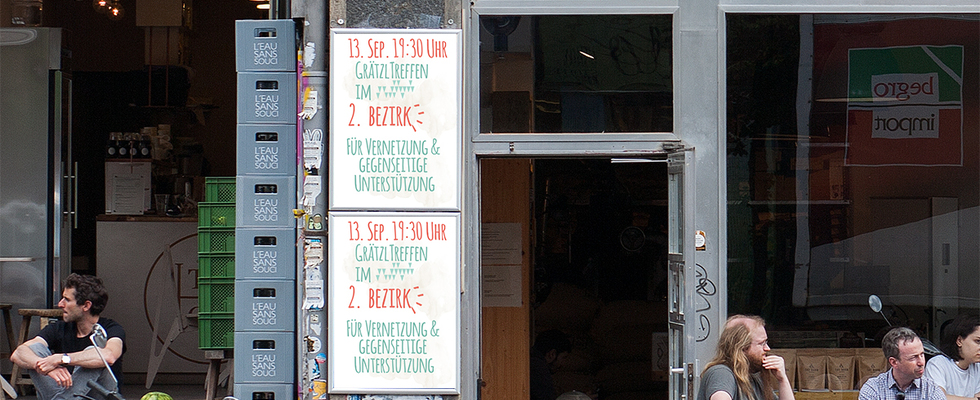 L'EAU
SANS
SOUCI
L'EAU
SANS
SOUCI
L'EAU
SANS
SOUCI
L'EAU
SANS
SOUCI
L'EAU
SANS
SOUCI
L'EAU
SANS
SOUCI
L'EAU
SANS
SOUCI
13. Sep. 19:30 Uhr
GrätzlTreffen
im
2. Bezirk
Für Vernetzung &
gegenseitige
Unterstützung
13. Sep. 19:30 Uhr
GrätzlTreffen
im
2. Bezirk
Für Vernetzung &
gegenseitige
Unterstützung
begro
import